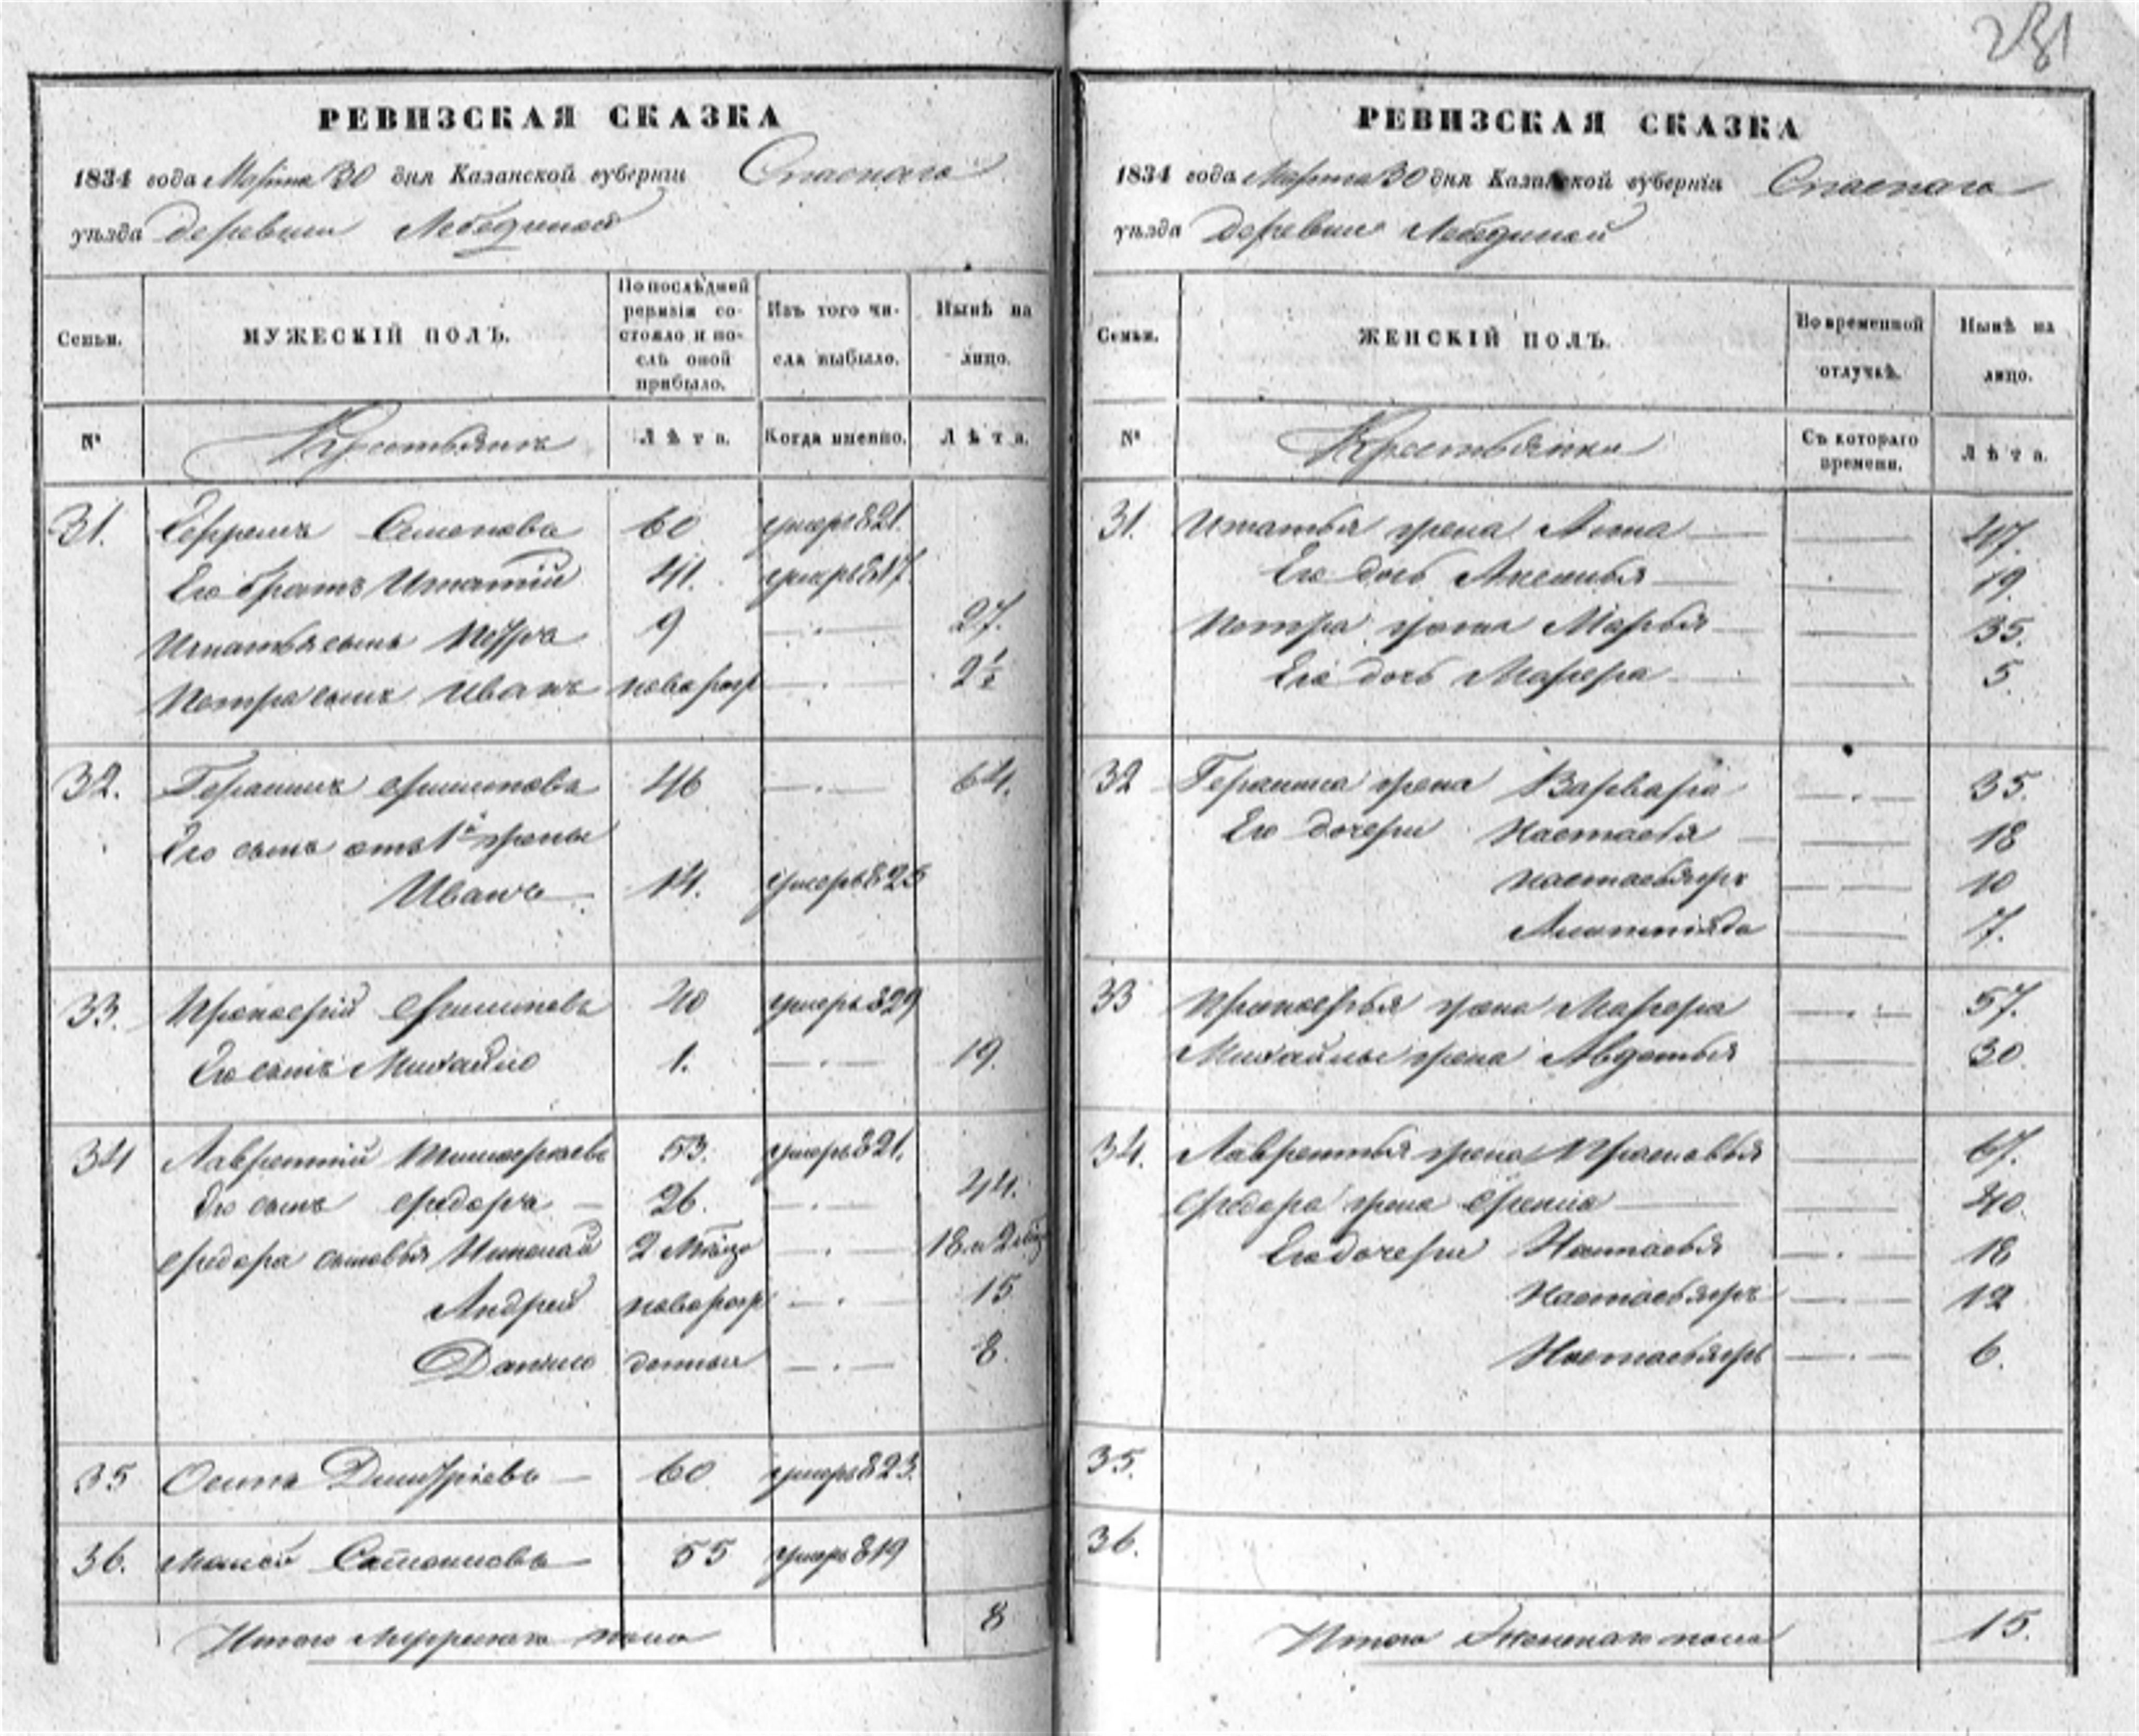 281
РЕВИЗСКАЯ СКАЗКА
1834 года Марта 30 дня Казанской губерніи Спаскаго
уѣзда деревни Лебединой
Семьи.
МУЖЕСКІЙ ПОЛЪ.
По послѣдней ревизіи состояло и послѣ оной прибыло.
Изъ того числа выбыло.
Нынѣ на лицо.
№
Крестьянъ
Лѣта.
Когда именно.
Лѣта.
31. Ефремъ Семеновъ 60 умеръ 821.
Его братъ Игнатій 41. умеръ 817.
Игнатья сынъ Петръ 9 27.
Петра сынъ Иванъ новорож 2½
32. Герасимъ 46 64.
Его сынъ отъ 1й жены
Иванъ 14. умеръ 825
33. Прокофій 40 умеръ 829
Его сынъ Михайло 1. 19.
34 Лаврентій Тимофеевъ 53. умеръ 821.
Его сынъ Федоръ 26. 44.
Федора сыновья Николай 2 мѣсяц 18 и 2 мѣс
Андрей новорож 15
Данило денныя 8.
35 Осипъ Дмитріевъ 60. умеръ 823.
36. Моисей 55 умеръ 819
Итого мужеска пола 8
РЕВИЗСКАЯ СКАЗКА
1834 года Марта 30 дня Казанской губерніи Спаскаго
уѣзда деревни Лебединой
Семьи.
ЖЕНСКІЙ ПОЛЪ.
Во временной отлучкѣ.
Нынѣ на лицо.
№
Крестьянки
Съ котораго времени.
Лѣта.
31. Игнатья жена Анна 47.
Его дочь Аксинья 19.
Петра жена Марья 35.
Его дочь Марфа 5.
32 Герасима жена Варвара 35.
Его дочери Настасья 18
Настасья же 10
7.
33 Прокофья жена Марфа 57.
Михайлы жена Авдотья 30
34. Лаврентья жена Прасковья 67.
Федора жена 40.
Его дочери Настасья 18
Настасья же 12
Настасья же 6.
35.
36.
Итого женска пола 15.